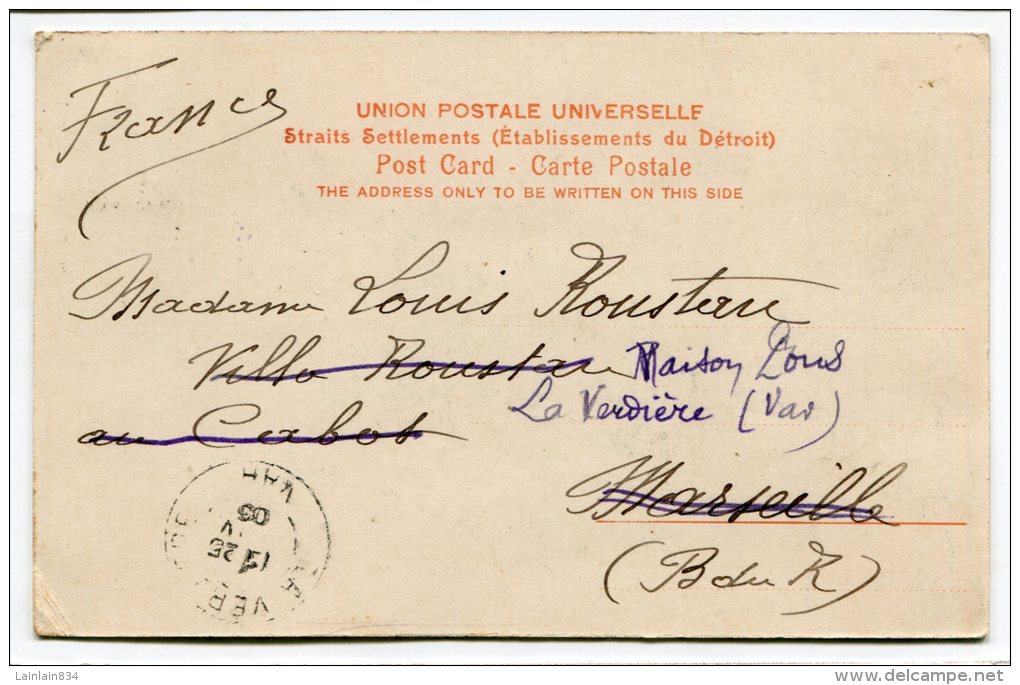 France
UNION POSTALE UNIVERSELLE
Straits Settlements (Établissements du Détroit)
Post Card - Carte Postale
THE ADDRESS ONLY TO BE WRITTEN ON THIS SIDE
Madame Louis Roustan
Villa Roustan Maison Louis
La Verdière (Var)
au Cabot
Marseille
(B du R)
VAR
03
25
LA VER
Lainlain834
delcampe.net